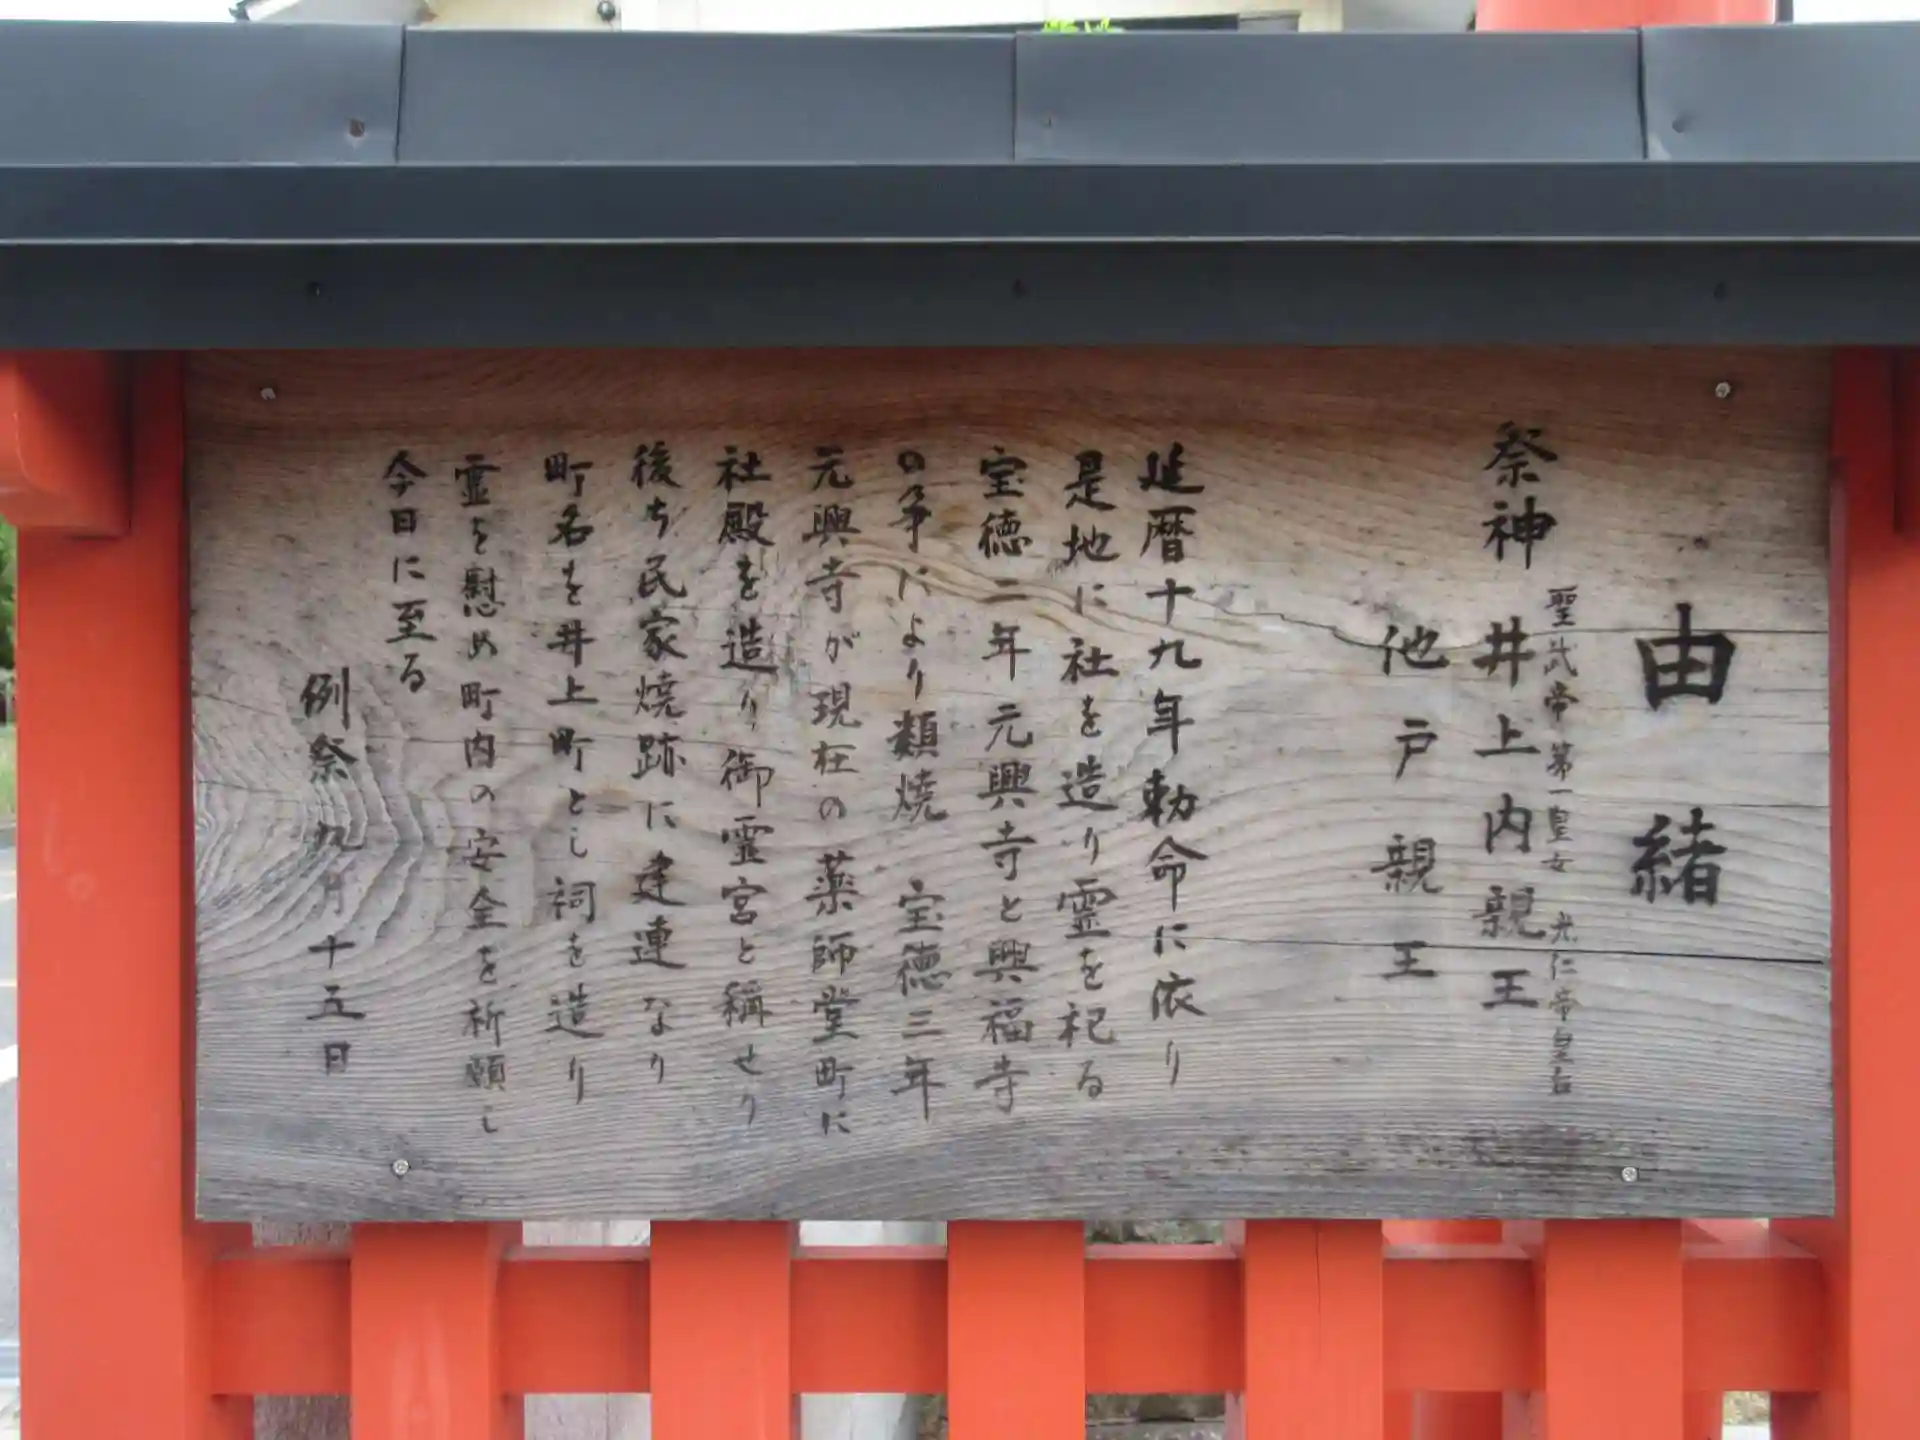 由緒
聖武帝第一皇女 光仁帝皇后
祭神 井上内親王
他戸親王
延暦十九年勅命に依り
是地に社を造り霊を祀る
宝徳二年元興寺と興福寺
の争により類焼 宝徳三年
元興寺が現在の薬師堂町に
社殿を造り御霊宮と稱せり
後ち民家焼跡に建連なり
町名を井上町とし祠を造り
霊を慰め町内の安全を祈願し
今日に至る
例祭九月十五日